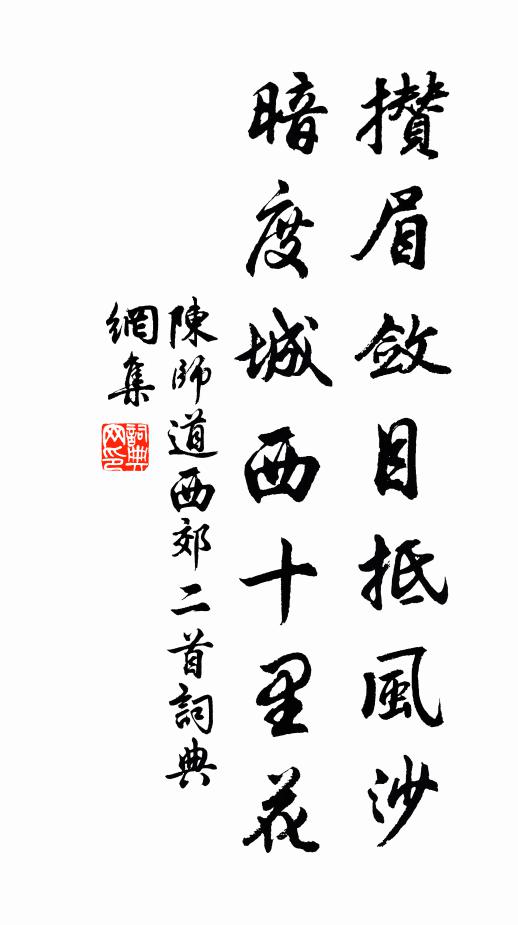 攢眉斂目抵風沙
暗度城西十里花
陳師道西郊二首詞典
網集
詞典網印